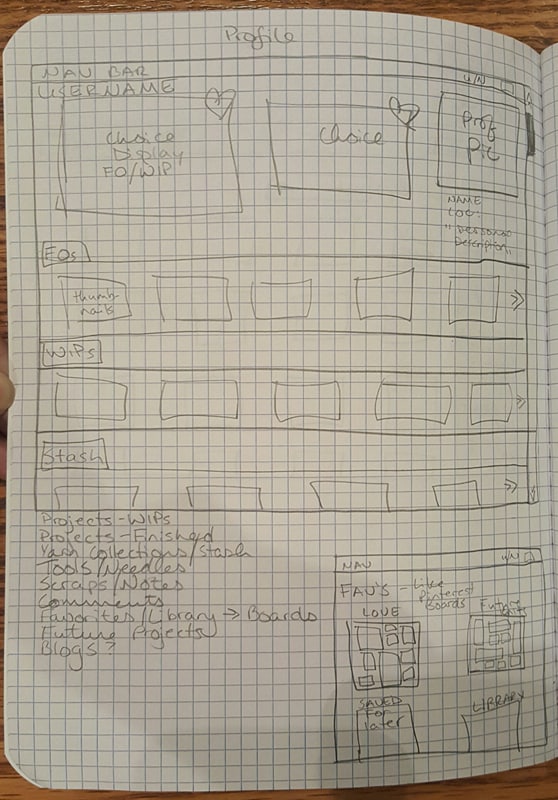 Profile
NAV BAR
U/N
USERNAME
Choice
Display
FO/WIP
Choice
Prof
Pic
NAME
LOC:
"Personal
Description"
FOs
thumb-
nails
WiPs
Stash
Projects - WIPs
Projects - Finished
Yarn Collections/Stash
Tools/Needles
Scraps/Notes
Comments
Favorites/Library → Boards
Future Projects
Blogs?
NAV
U/N
FAV'S - Like
Pinterest
Boards
LOVE
Future
SAVED
For
later
LIBRARY